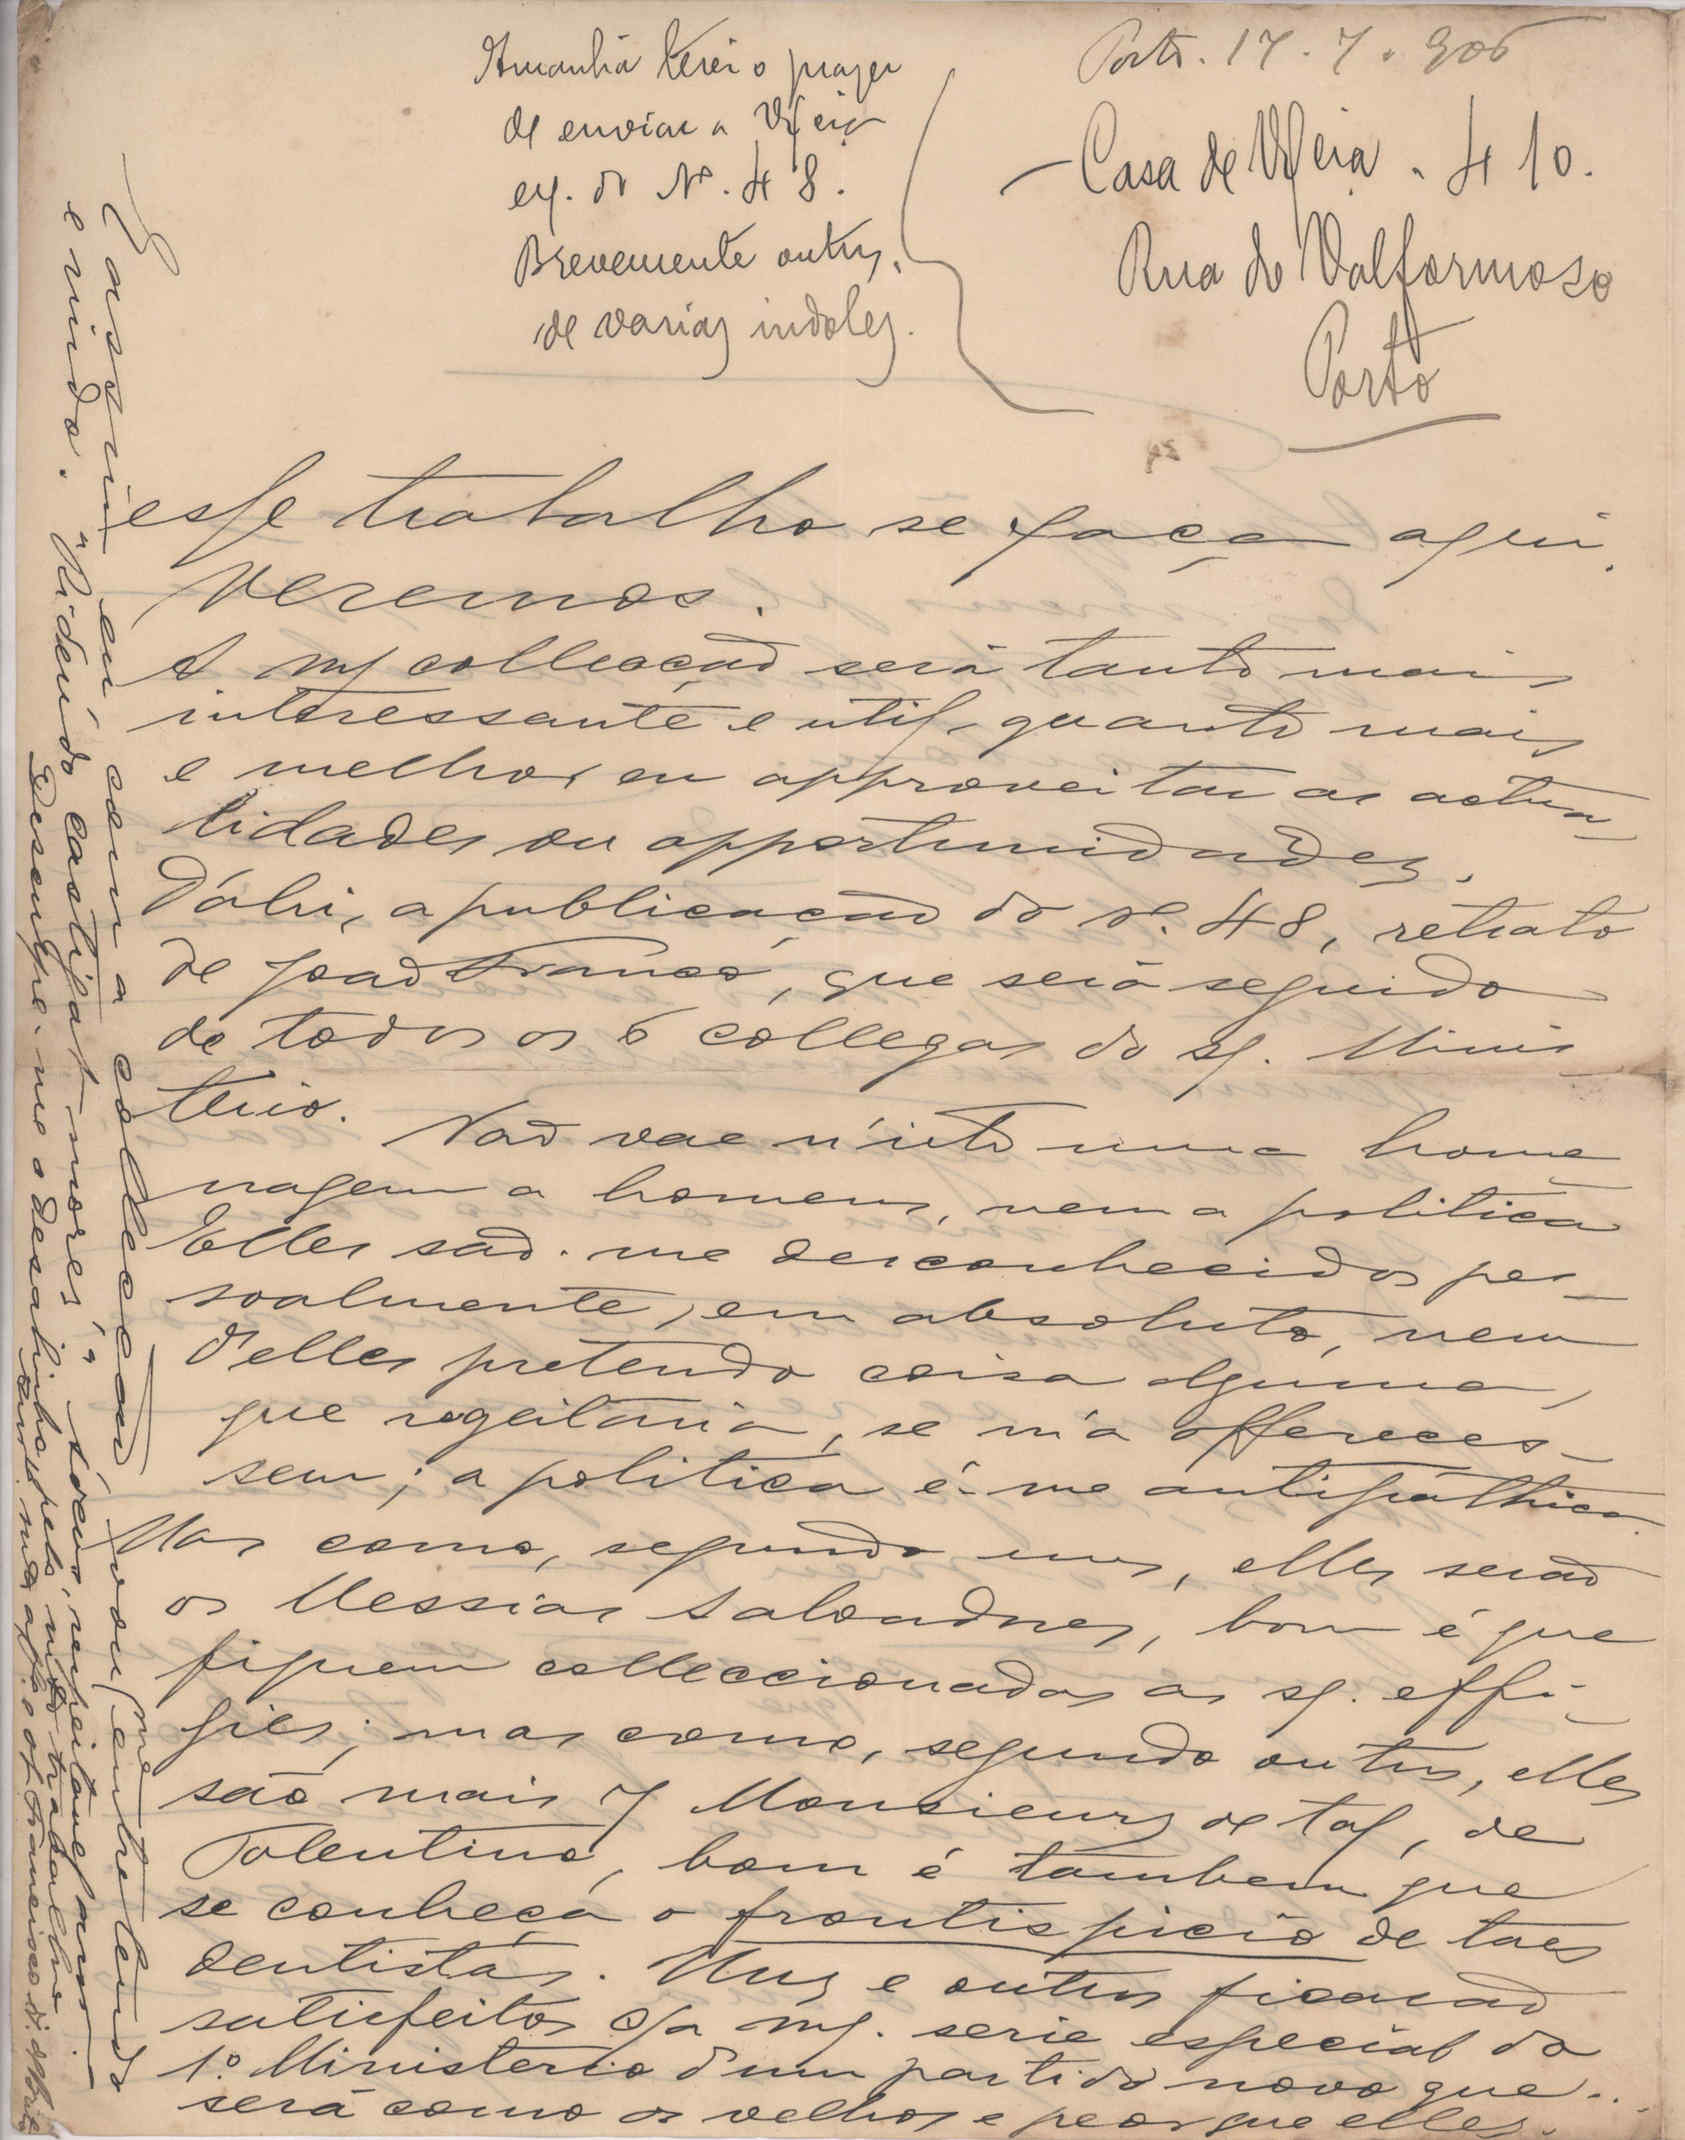 Porto. 17. 7. 906
Casa de V. Exia. 410.
Rua do Valformoso
Porto
Amanhã terei o prazer
de enviar a V. Exia
ex. do Nº. 48.
Brevemente outros,
de varias indoles.
esse trabalho se faça aqui.
Veremos.
A mª collecção será tanto mais
interessante e util, quanto mais
e melhor eu approveitar as actua-
lidades ou opportunidades.
D'ahi, a publicação do nº. 48, retrato
de João Franco, que será seguido
de todos os 6 collegas do sª. Minis
terio.
Não vae n'isto uma home
nagem a homens, nem a politica
Elles são-me desconhecidos pes-
soalmente, em absoluto, nem
d'elles pretendo coisa alguma,
que regeitaria, se m'a offereces-
sem; a politica é-me antipáthica.
Mas como, segundo uns, elles serão
os Messias salvadores, bom é que
fiquem colleccionadas as sª. effi-
gies; mas como, segundo outros, elles
são mais 7 Monsieurs de tal, de
Tolentino, bom é tambem que
se conheça o frontispicio de taes
dentistas. Uns e outros ficarão
satisfeitos c/a mª. serie especial do
1º. Ministerio d'um partido novo que...
será como os velhos e peor que elles.
E assim eu com a collecção vou-me entretendo
e rindo. "Ridendo castigat mores",
Desculpe-me o desalinho pelo mtº trabalho.